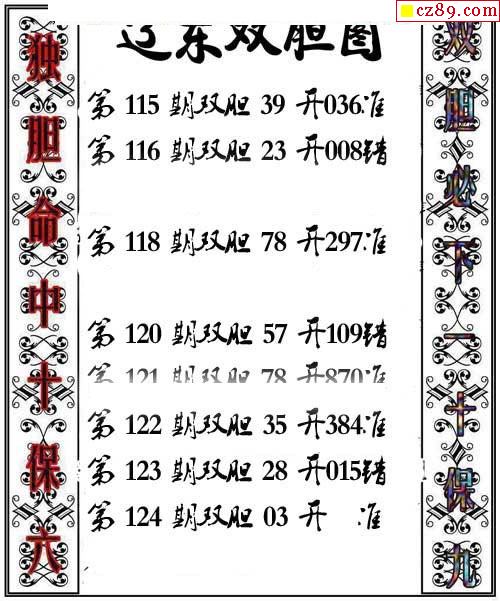 cz89.com
辽东双胆图
独胆命中十保六
第 115 期双胆 39 开036准
第 116 期双胆 23 开008错
第 118 期双胆 78 开297准
第 120 期双胆 57 开109错
第 121 期双胆 78 开870准
第 122 期双胆 35 开384准
第 123 期双胆 28 开015错
第 124 期双胆 03 开 准
双胆必下一十保九